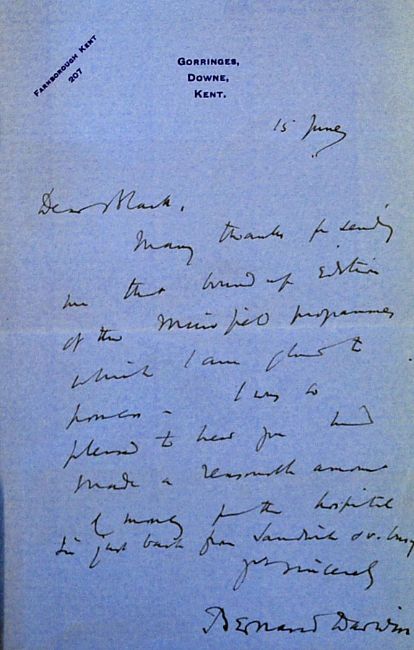 FARNBOROUGH KENT
207
GORRINGES,
DOWNE,
KENT.
15 June
Dear Mark,
Many thanks for sending
me that bound up Edition
of the Muirfield programmes
which I am glad to
possess - I was so
pleased to hear you had
made a reasonable amount
of money for the hospital
I'm just back from Sandwich & v. busy
yrs sincerely
Bernard Darwin